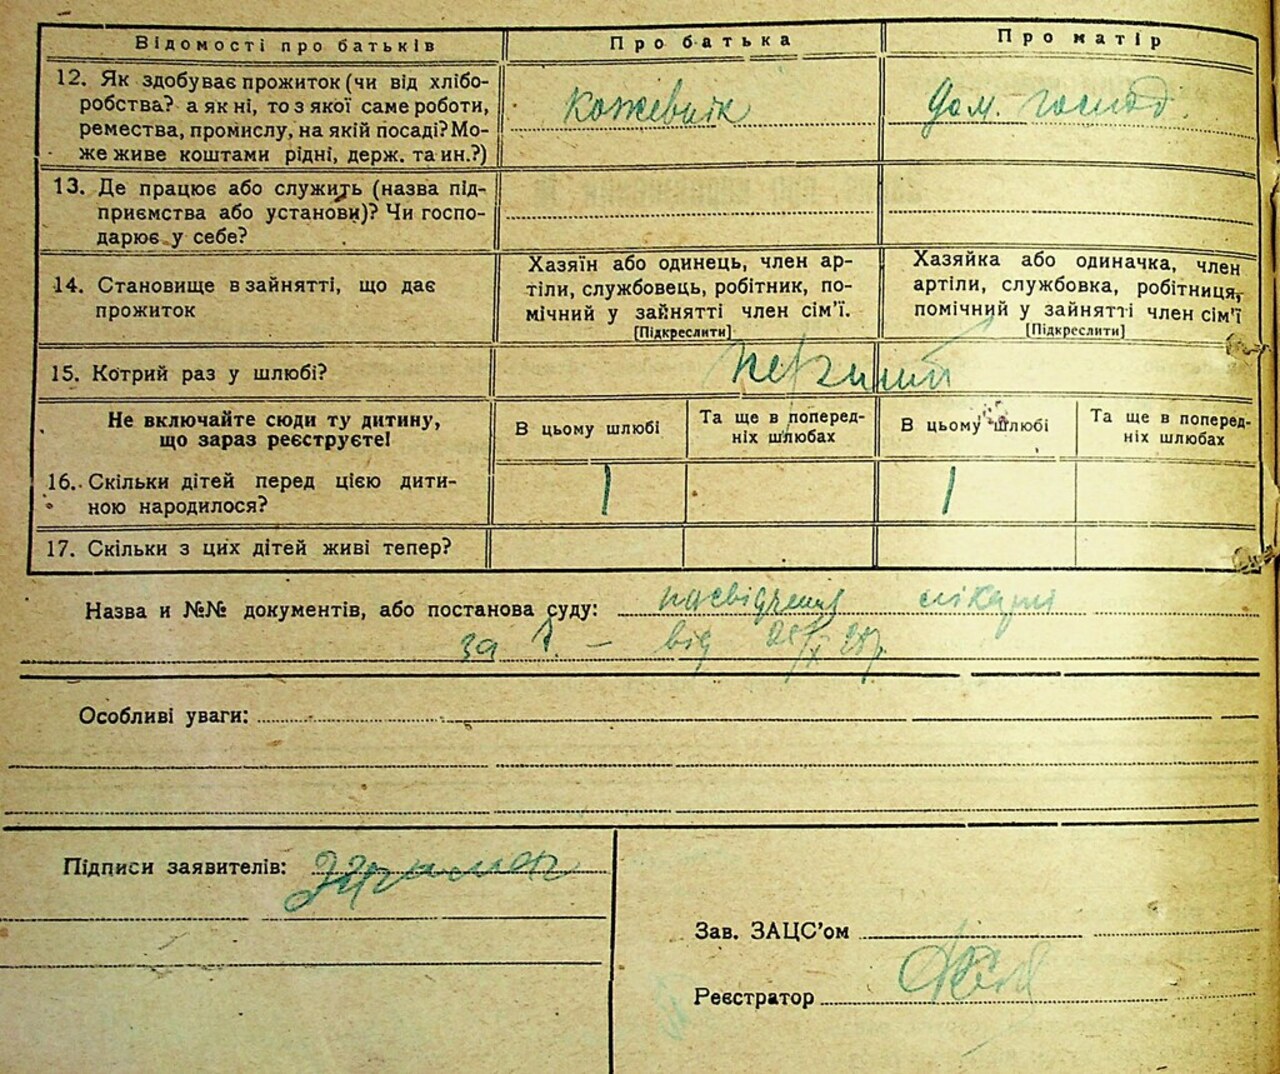 Відомості про батьків
Про батька
Про матір
12. Як здобуває прожиток (чи від хлібо-
робства? а як ні, то з якої саме роботи,
ремества, промислу, на якій посаді? Мо-
же живе коштами рідні, держ. та ин.?)
кожевник
дом. господ.
13. Де працює або служить (назва під-
приємства або установи)? Чи госпо-
дарює у себе?
14. Становище в зайнятті, що дає
прожиток
Хазяїн або одинець, член ар-
тіли, службовець, робітник, по-
мічний у зайнятті член сім'ї.
[Підкреслити]
Хазяйка або одиначка, член
артіли, службовка, робітниця,
помічний у зайнятті член сім'ї
[Підкреслити]
15. Котрий раз у шлюбі?
перший
Не включайте сюди ту дитину,
що зараз реєструєте!
В цьому шлюбі
Та ще в поперед-
ніх шлюбах
В цьому шлюбі
Та ще в поперед-
ніх шлюбах
16. Скільки дітей перед цією дити-
ною народилося?
1
1
17. Скільки з цих дітей живі тепер?
Назва и №№ документів, або постанова суду: посвідчення лікарні
за № — від
Особливі уваги:
Підписи заявителів:
Зав. ЗАЦС'ом
Реєстратор